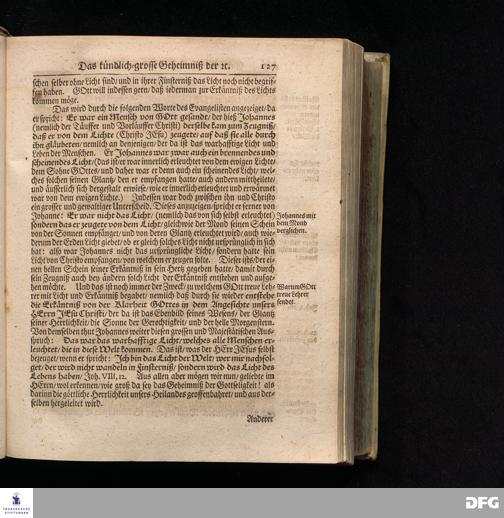 Das kündlich-grosse Geheimniß der ꝛc. 127
schen selber ohne Licht sind/ und in ihrer Finsterniß das Licht noch nicht begrif-
fen haben. GOtt will indessen gern/ daß jederman zur Erkäntniß des Lichts
kommen möge.
Das wird durch die folgenden Worte des Evangelisten angezeiget/ da
er spricht: Es war ein Mensch von GOtt gesandt/ der hieß Johannes
(nemlich der Täuffer und Vorläuffer Christi) derselbe kam zum Zeugniß/
daß er von dem Lichte (Christo JEsu) zeugete/ auf daß sie alle durch
ihn gläubeten/ nemlich an denjenigen/ der da ist das warhafftige Licht und
Leben der Menschen. Er Johannes war zwar auch ein brennendes und
scheinendes Licht/ (das ist/ er war innerlich erleuchtet von dem ewigen Lichte/
dem Sohne GOttes/ und daher war er denn auch ein scheinendes Licht/ wel-
ches solchen seinen Glantz/ den er empfangen hatte/ auch andern mittheilete/
und äusserlich sich dergestalt erwiese/ wie er innerlich erleuchtet und erwärmet
war von dem ewigen Lichte.) Indessen war doch zwischen ihn und Christo
ein grosser und gewaltiger Unterscheid. Dieses anzuzeigen/ spricht er ferner von
Johanne: Er war nicht das Licht/ (nemlich das von sich selbst erleuchtet)
sondern das er zeugete von dem Licht; gleichwie der Mond seinen Schein
von der Sonnen empfänget/ und von deren Glantz erleuchtet wird/ auch wie-
derum der Erden Licht giebet/ ob er gleich solches Licht nicht ursprünglich in sich
hat: also war Johannes nicht das ursprüngliche Licht/ sondern hatte sein
Licht von Christo empfangen/ von welchem er zeugen solte. Dieser ists/ der ei-
nen hellen Schein seiner Erkäntniß in sein Hertz gegeben hatte/ damit durch
sein Zeugniß auch bey andern solch Licht der Erkäntniß entstehen und aufge-
hen möchte. Und das ist noch immer der Zweck/ zu welchem GOtt treue Leh-
rer mit Licht und Erkäntniß begabet/ nemlich daß durch sie wieder entstehe
die Erkäntniß von der Klarheit GOttes in dem Angesichte unsers
HErrn JEsu Christi/ der da ist das Ebenbild seines Wesens/ der Glantz
seiner Herrlichkeit/ die Sonne der Gerechtigkeit/ und der helle Morgenstern.
Von demselben thut Johannes weiter diesen grossen und Majestätischen Aus-
spruch: Das war das warhafftige Licht/ welches alle Menschen er-
leuchtet/ die in diese Welt kommen. Das ist/ was der HErr JEsus selbst
bezeuget/ wenn er spricht: Ich bin das Licht der Welt/ wer mir nachfol-
get/ der wird nicht wandeln in Finsterniß/ sondern wird das Licht des
Lebens haben/ Joh. VIII, 12. Aus allen aber mögen wir nun/ geliebte im
HErrn/ wol erkennen/ wie groß da sey das Geheimniß der Gottseligkeit! als
darinn die göttliche Herrlichkeit unsers Heilandes geoffenbahret/ und aus der-
selben hergeleitet wird.
Anderer
Johannes mit
dem Mond
verglichen.
Warum GOtt
treue Lehrer
sendet.
FRANCKESCHE
STIFTUNGEN
DFG